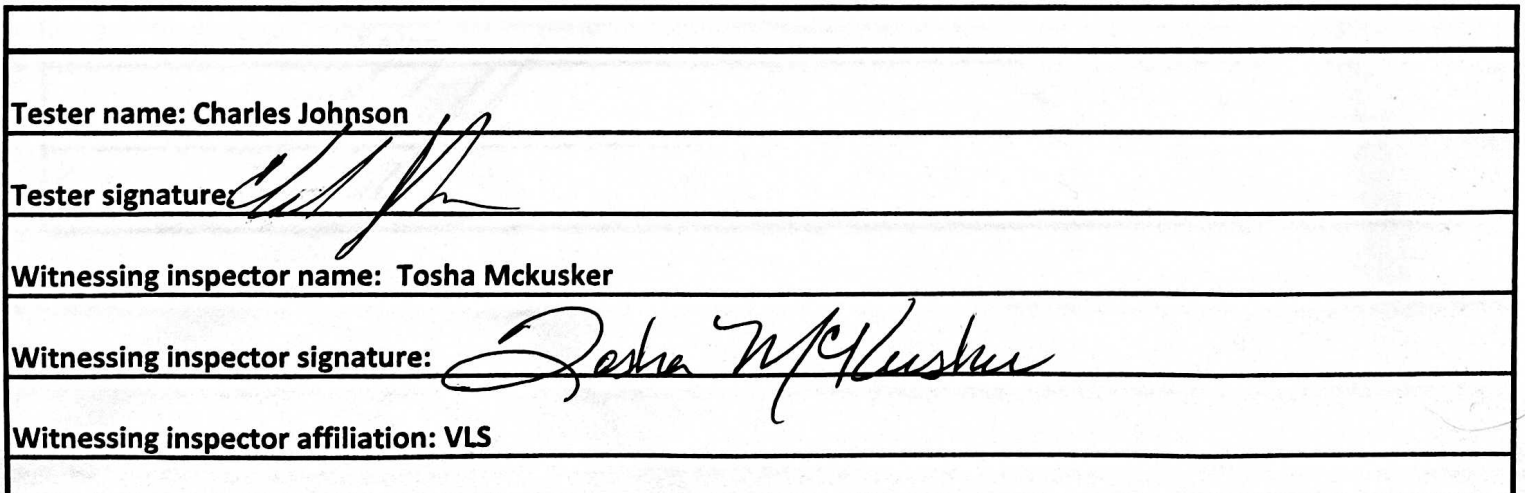 Tester name: Charles Johnson
Tester signature:
Witnessing inspector name: Tosha Mckusker
Witnessing inspector signature: Tosha McKusker
Witnessing inspector affiliation: VLS